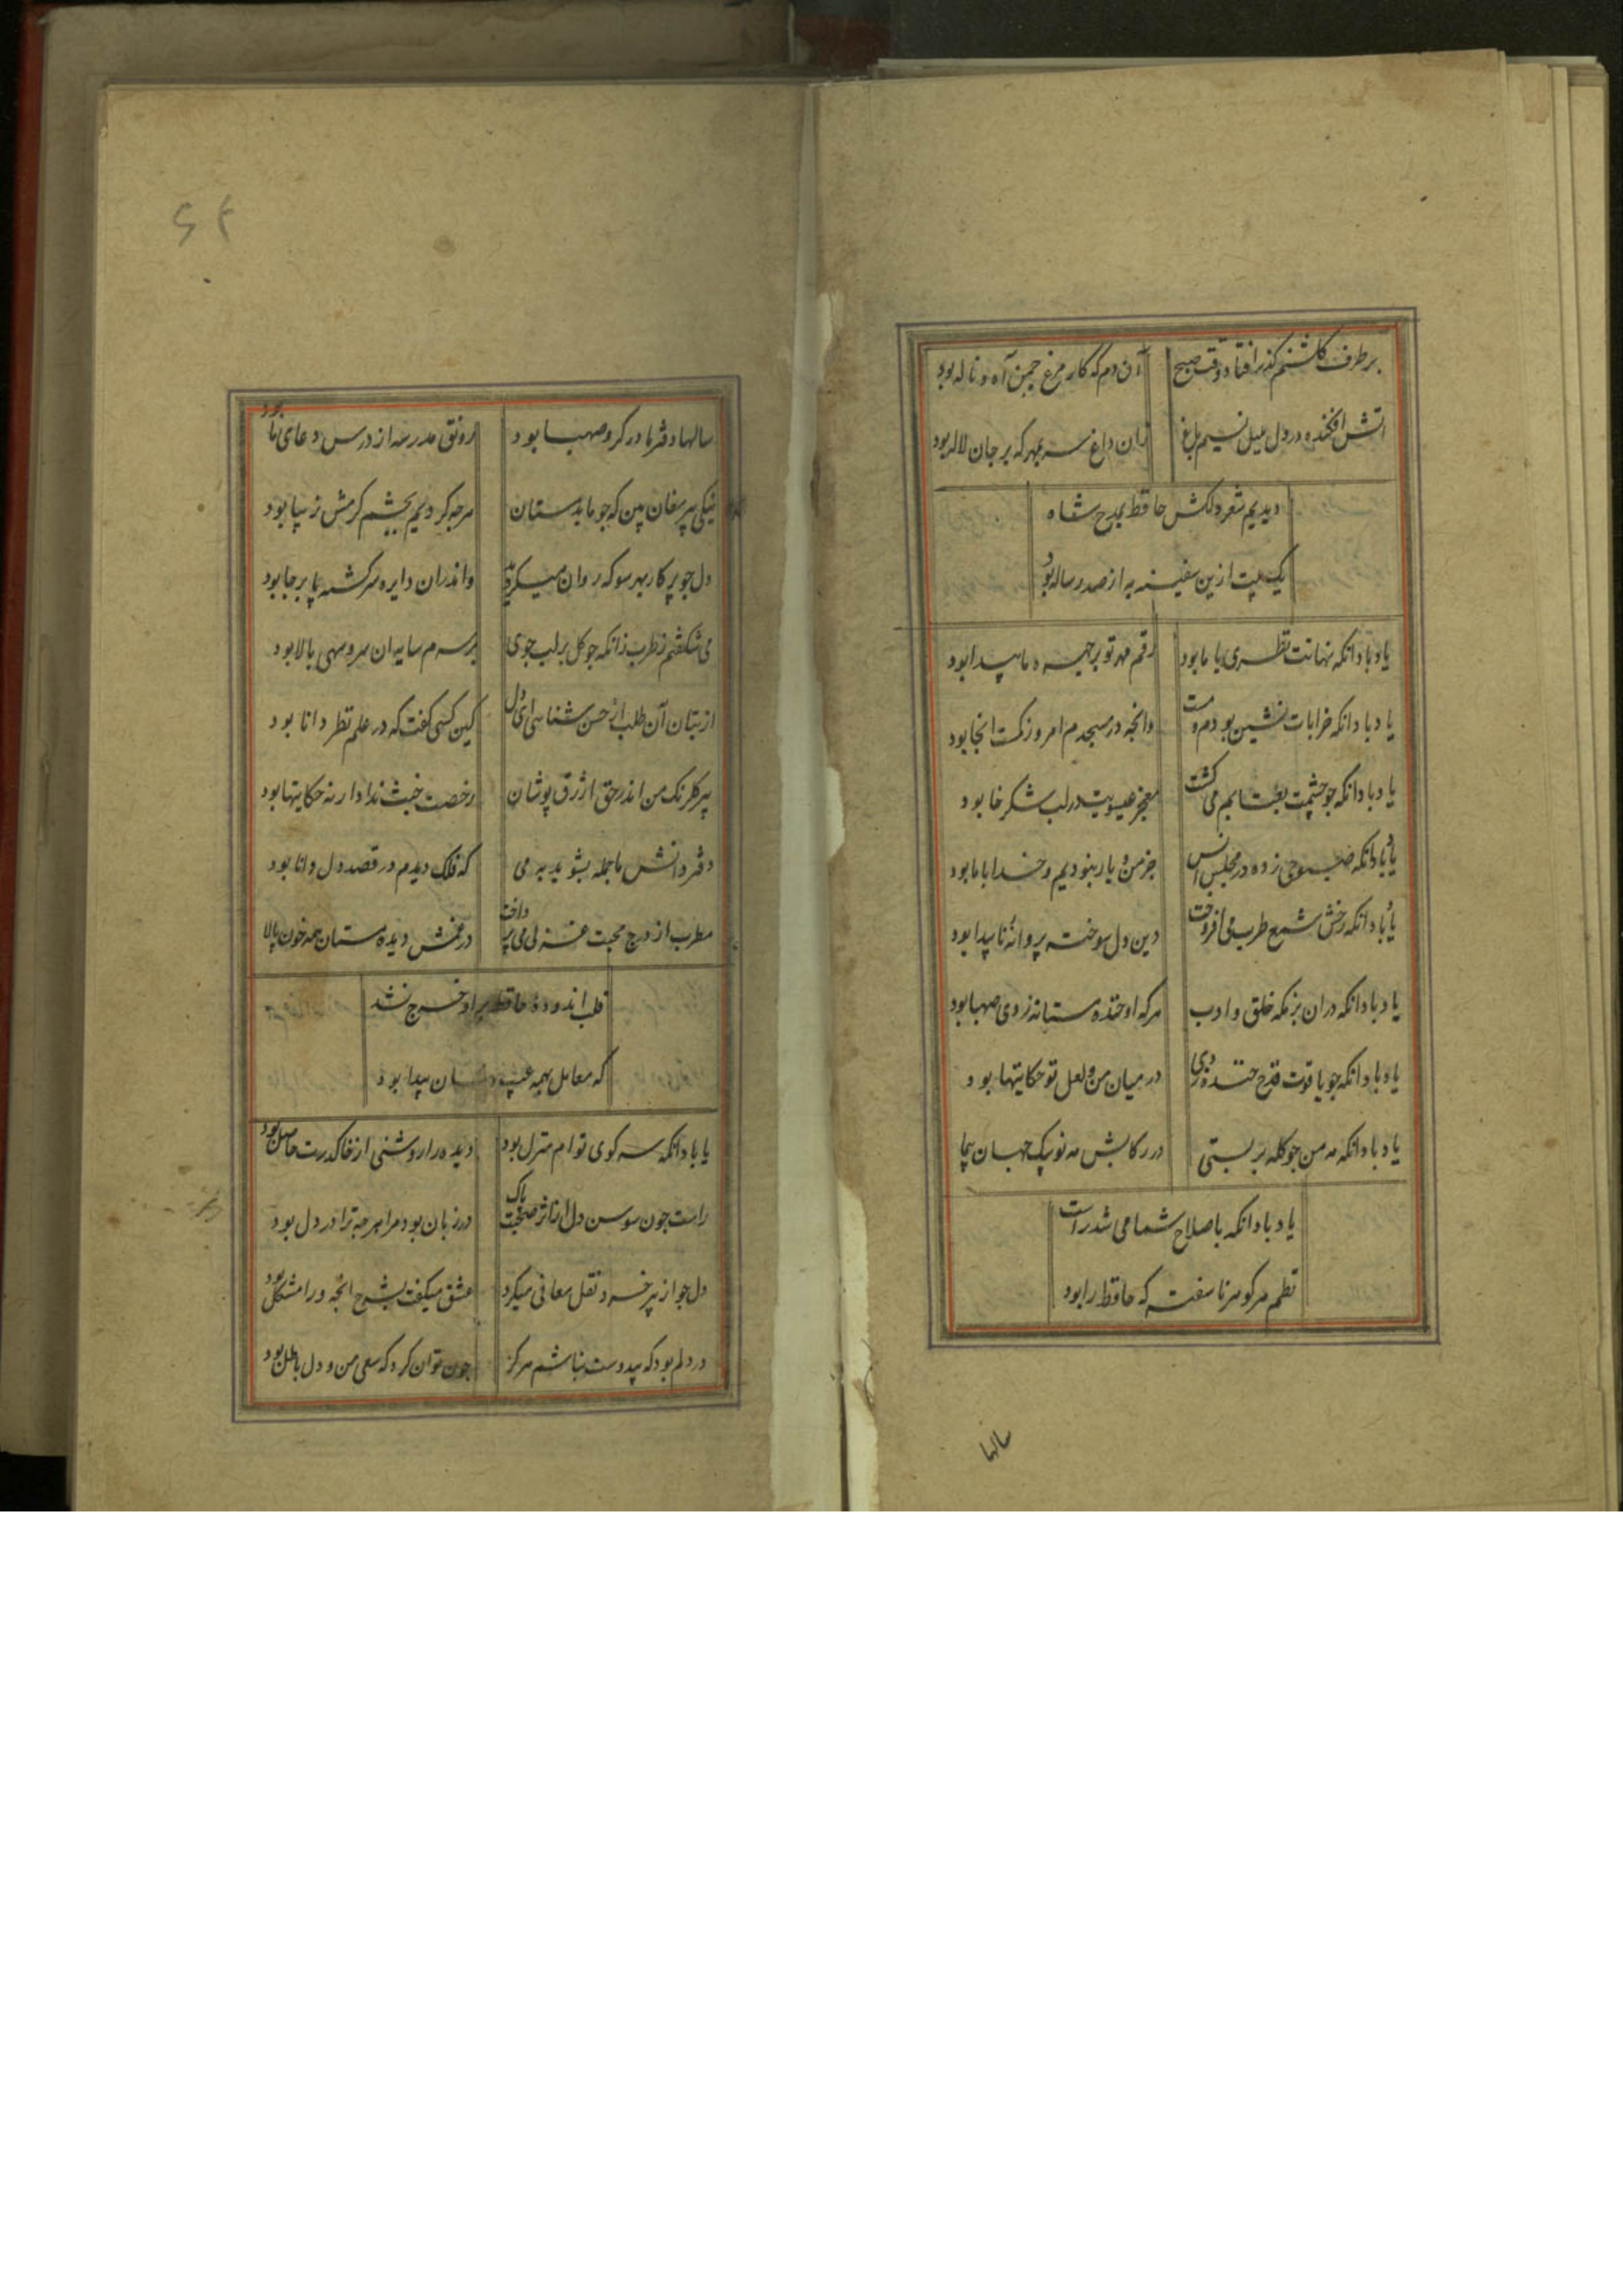 بر طرف گلشنم گذر افتاد وقت صبح آن دم که کار مرغ چمن آه و ناله بود
اتش افکنده در دل بلبل نسیم باغ زان داغ سر بمهر که بر جان لاله بود
دیدیم شعر دلکش حافظ بمدح شاه
یک بیت ازین سفینه به از صد رساله بود
یاد باد انکه نهانت نظری با ما بود رقم مهر تو بر چهره ما پیدا بود
یاد باد انکه خرابات نشین بودم و مست وانچه در مسجدم امروز کمست انجا بود
یاد باد انکه چو چشمت بعتابم می کشت معجز عیسویت در لب شکر خا بود
یاد باد انکه صبوحی زده در مجلس انس جز من و یار نبودیم و خدا با ما بود
یاد باد انکه رخش شمع طرب می افروخت وین دل سوخته پروانه ناپیدا بود
یاد باد انکه دران بزمکه خلق و ادب هرکه او خنده مستانه زدی صهبا بود
یاد باد انکه چو یاقوت قدح خنده زدی در میان من و لعل تو حکایتها بود
یاد باد انکه مه من چو کله بربستی در رکابش مه نو پیک جهان پیما
یاد باد انکه باصلاح شما می شد راست
نظم هر کوهر ناسفته که حافظ را بود
سالها
سالها دفتر ما در کرو صهبا بود رونق مدرسه از درس و دعای ما بود
نیکی پیر مغان بین که چو ما بدمستان هرچه کردیم بچشم کرمش زیبا بود
دل چو پرکار بهر سو که روان میکردی واندران دایره سرکشته پابرجا بود
می شکفتم ز طرب زانکه چو کل بر لب جوی بر سرم سایه ان سرو سهی بالا بود
از بتان آن طلب ار حسن شناسی ای دل کین کسی کفت که در علم نظر دانا بود
پیر کلرنک من اندر حق ازرق پوشان رخصت خبث نداد ار نه حکایتها بود
دفتر دانش ما جمله بشوید به می که فلک دیدم در قصد دل دانا بود
مطرب از درج محبت غزلی می پرداخت در غمش دیده مستان همه خون پالا
قلب اندوده حافظ بر او خرج نشد
که معامل بهمه عیب نهان پیدا بود
یاباد انکه سر کوی توام منزل بود دیده را روشنی از خاک درت حاصل بود
راست چون سوسن و کل از اثر صحبت پاک در زبان بود مرا هرچه ترا در دل بود
دل چو از پیر خرد نقل معانی میکرد عشق میکفت بشرح انچه ورا مشکل بود
در دلم بود که بیدوست نباشم هرکز چون توان کرد که سعی من و دل باطل بود